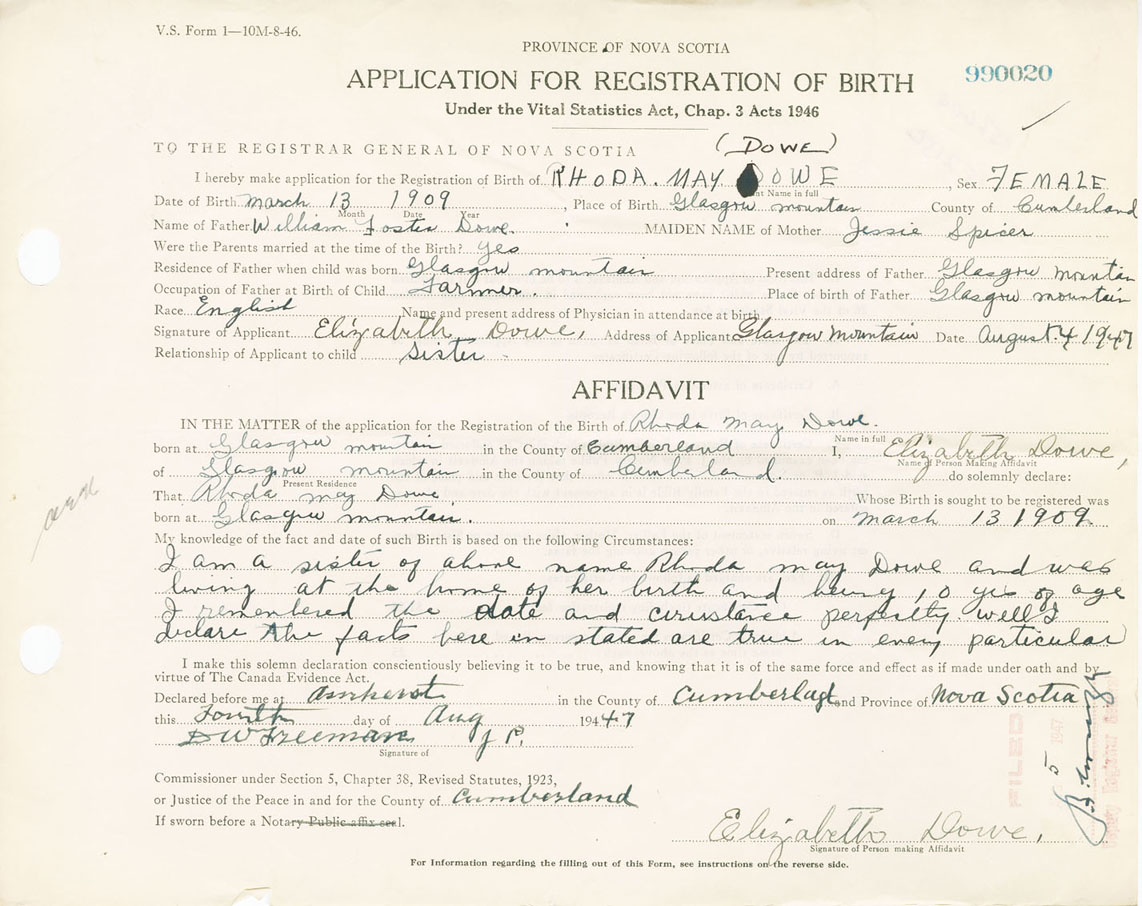 V.S. Form 1—10M-8-46.
PROVINCE OF NOVA SCOTIA
APPLICATION FOR REGISTRATION OF BIRTH
990020
Under the Vital Statistics Act, Chap. 3 Acts 1946
(DOWE)
TO THE REGISTRAR GENERAL OF NOVA SCOTIA
I hereby make application for the Registration of Birth of RHODA. MAY DOWE, Sex FEMALE
nt Name in full
Date of Birth March 13 1909, Place of Birth Glasgow mountain County of Cumberland
Month Date Year
Name of Father William Foster Dowe. MAIDEN NAME of Mother Jessie Spicer
Were the Parents married at the time of the Birth? Yes
Residence of Father when child was born Glasgow mountain Present address of Father Glasgow mountain
Occupation of Father at Birth of Child Farmer. Place of birth of Father Glasgow mountain
Race English Name and present address of Physician in attendance at birth
Signature of Applicant Elizabeth Dowe, Address of Applicant Glasgow Mountain Date August 4 1947
Relationship of Applicant to child Sister
AFFIDAVIT
IN THE MATTER of the application for the Registration of the Birth of Rhoda May Dowe.
Name in full
born at Glasgow mountain in the County of Cumberland I, Elizabeth Dowe,
Name of Person Making Affidavit
of Glasgow mountain in the County of Cumberland. do solemnly declare:
Present Residence
That Rhoda May Dowe, Whose Birth is sought to be registered was
born at Glasgow mountain. on March 13 1909
My knowledge of the fact and date of such Birth is based on the following Circumstances:
I am a sister of above name Rhoda may Dowe and was
living at the home of her birth and being 10 yrs of age
I remembered the date and cirustance perfectly well I
declare the facts here in stated are true in every particular
I make this solemn declaration conscientiously believing it to be true, and knowing that it is of the same force and effect as if made under oath and by
virtue of The Canada Evidence Act.
Declared before me at Amherst in the County of Cumberland and Province of Nova Scotia
this Fourth day of Aug 1947
DW Freeman J P.
Signature of
Commissioner under Section 5, Chapter 38, Revised Statutes, 1923,
or Justice of the Peace in and for the County of Cumberland
If sworn before a Notary Public affix seal.
Elizabeth Dowe,
Signature of Person making Affidavit
For Information regarding the filling out of this Form, see instructions on the reverse side.
FILED
5 1947